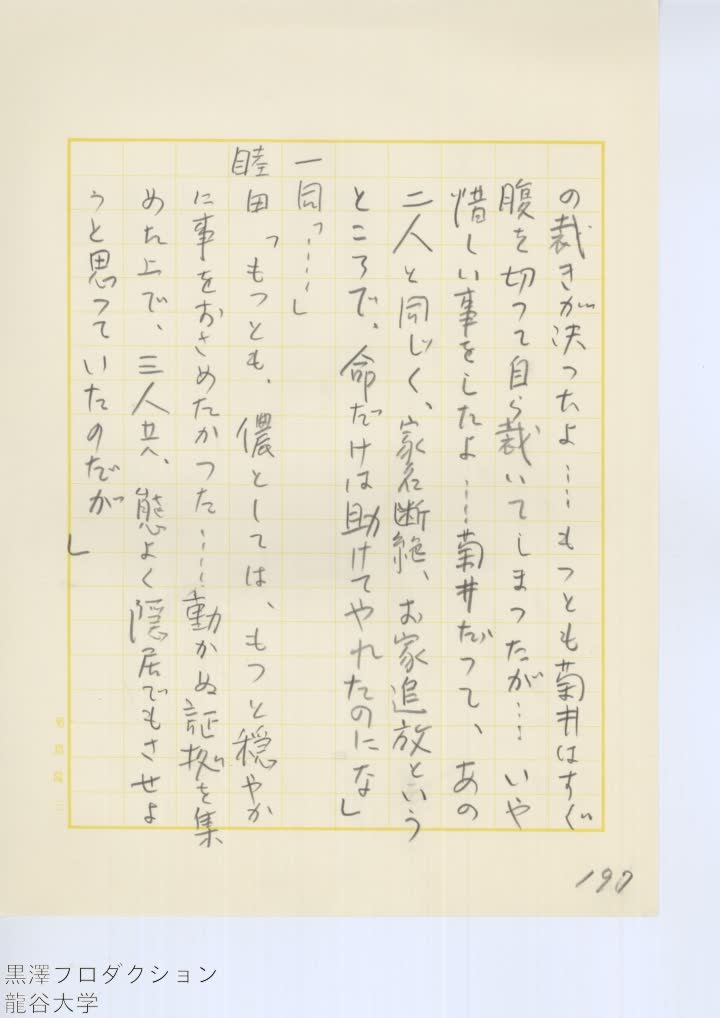 の裁きが決つたよ……もつとも菊井はすぐ
腹を切つて自ら裁いてしまつたが……いや
惜しい事をしたよ……菊井だつて、あの
二人と同じく、家名断絶、お家追放という
ところで、命だけは助けてやれたのにな」
一同「……」
睦田「もつとも、儂としては、もつと穏やか
に事をおさめたかつた……動かぬ証拠を集
めた上で、三人共、態よく隠居でもさせよ
うと思つていたのだが」
197
黒澤プロダクション
龍谷大学